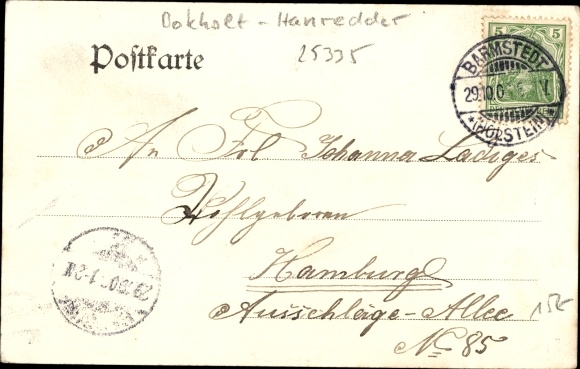 Bokholt - Hanredder
25335
Postkarte
5 5
BARMSTEDT
29.10.0
*(HOLSTEIN)*
An Frl Johanna Ladiges
Wohlgeboren
Hamburg
Ausschläge-Allee
No. 85
15E